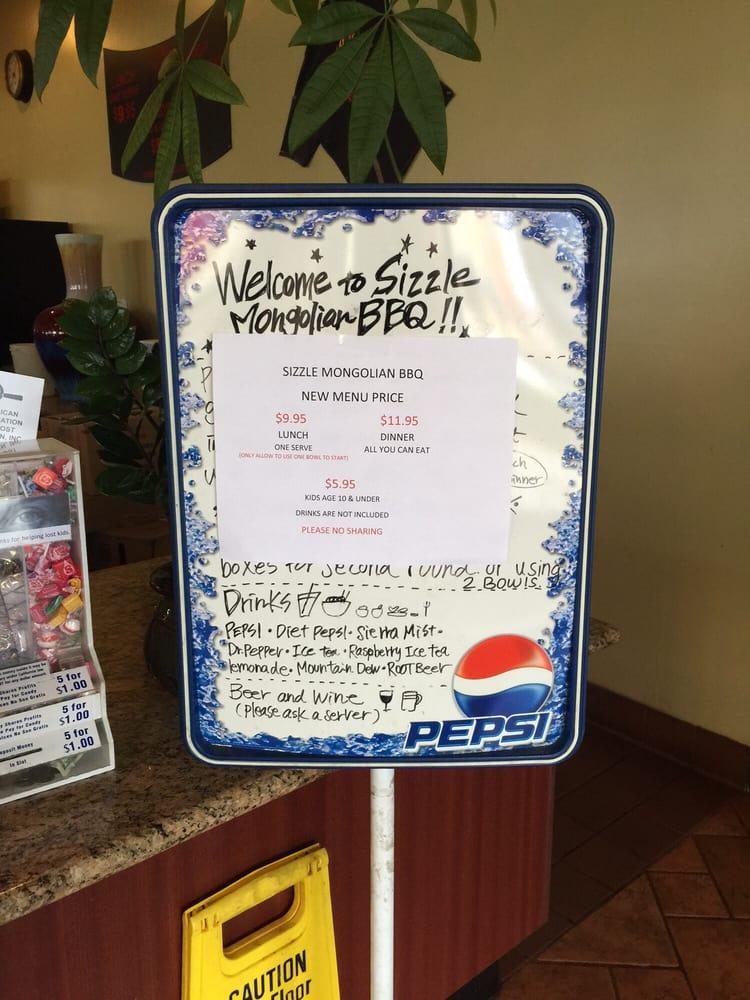 LUNCH
$9.95
Welcome to Sizzle
Mongolian BBQ!!
SIZZLE MONGOLIAN BBQ
NEW MENU PRICE
$9.95 $11.95
LUNCH DINNER
ONE SERVE ALL YOU CAN EAT
(ONLY ALLOW TO USE ONE BOWL TO START)
$5.95
KIDS AGE 10 & UNDER
DRINKS ARE NOT INCLUDED
PLEASE NO SHARING
boxes for second round or using
2 Bowls.
Drinks
PEPSI • Diet Pepsi • Sierra Mist •
Dr.Pepper • Ice tea • Raspberry Ice tea
lemonade • Mountain Dew • ROOT Beer
Beer and Wine
(please ask a server)
PEPSI
for helping lost kids.
5 for
$1.00
5 for
$1.00
5 for
$1.00
In Slot
CAUTION
Floor